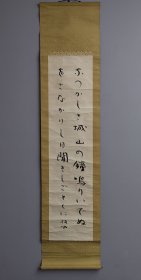 なつかしき城山の鐘鳴りいでぬ
をさなかりし日聞きしごとくに